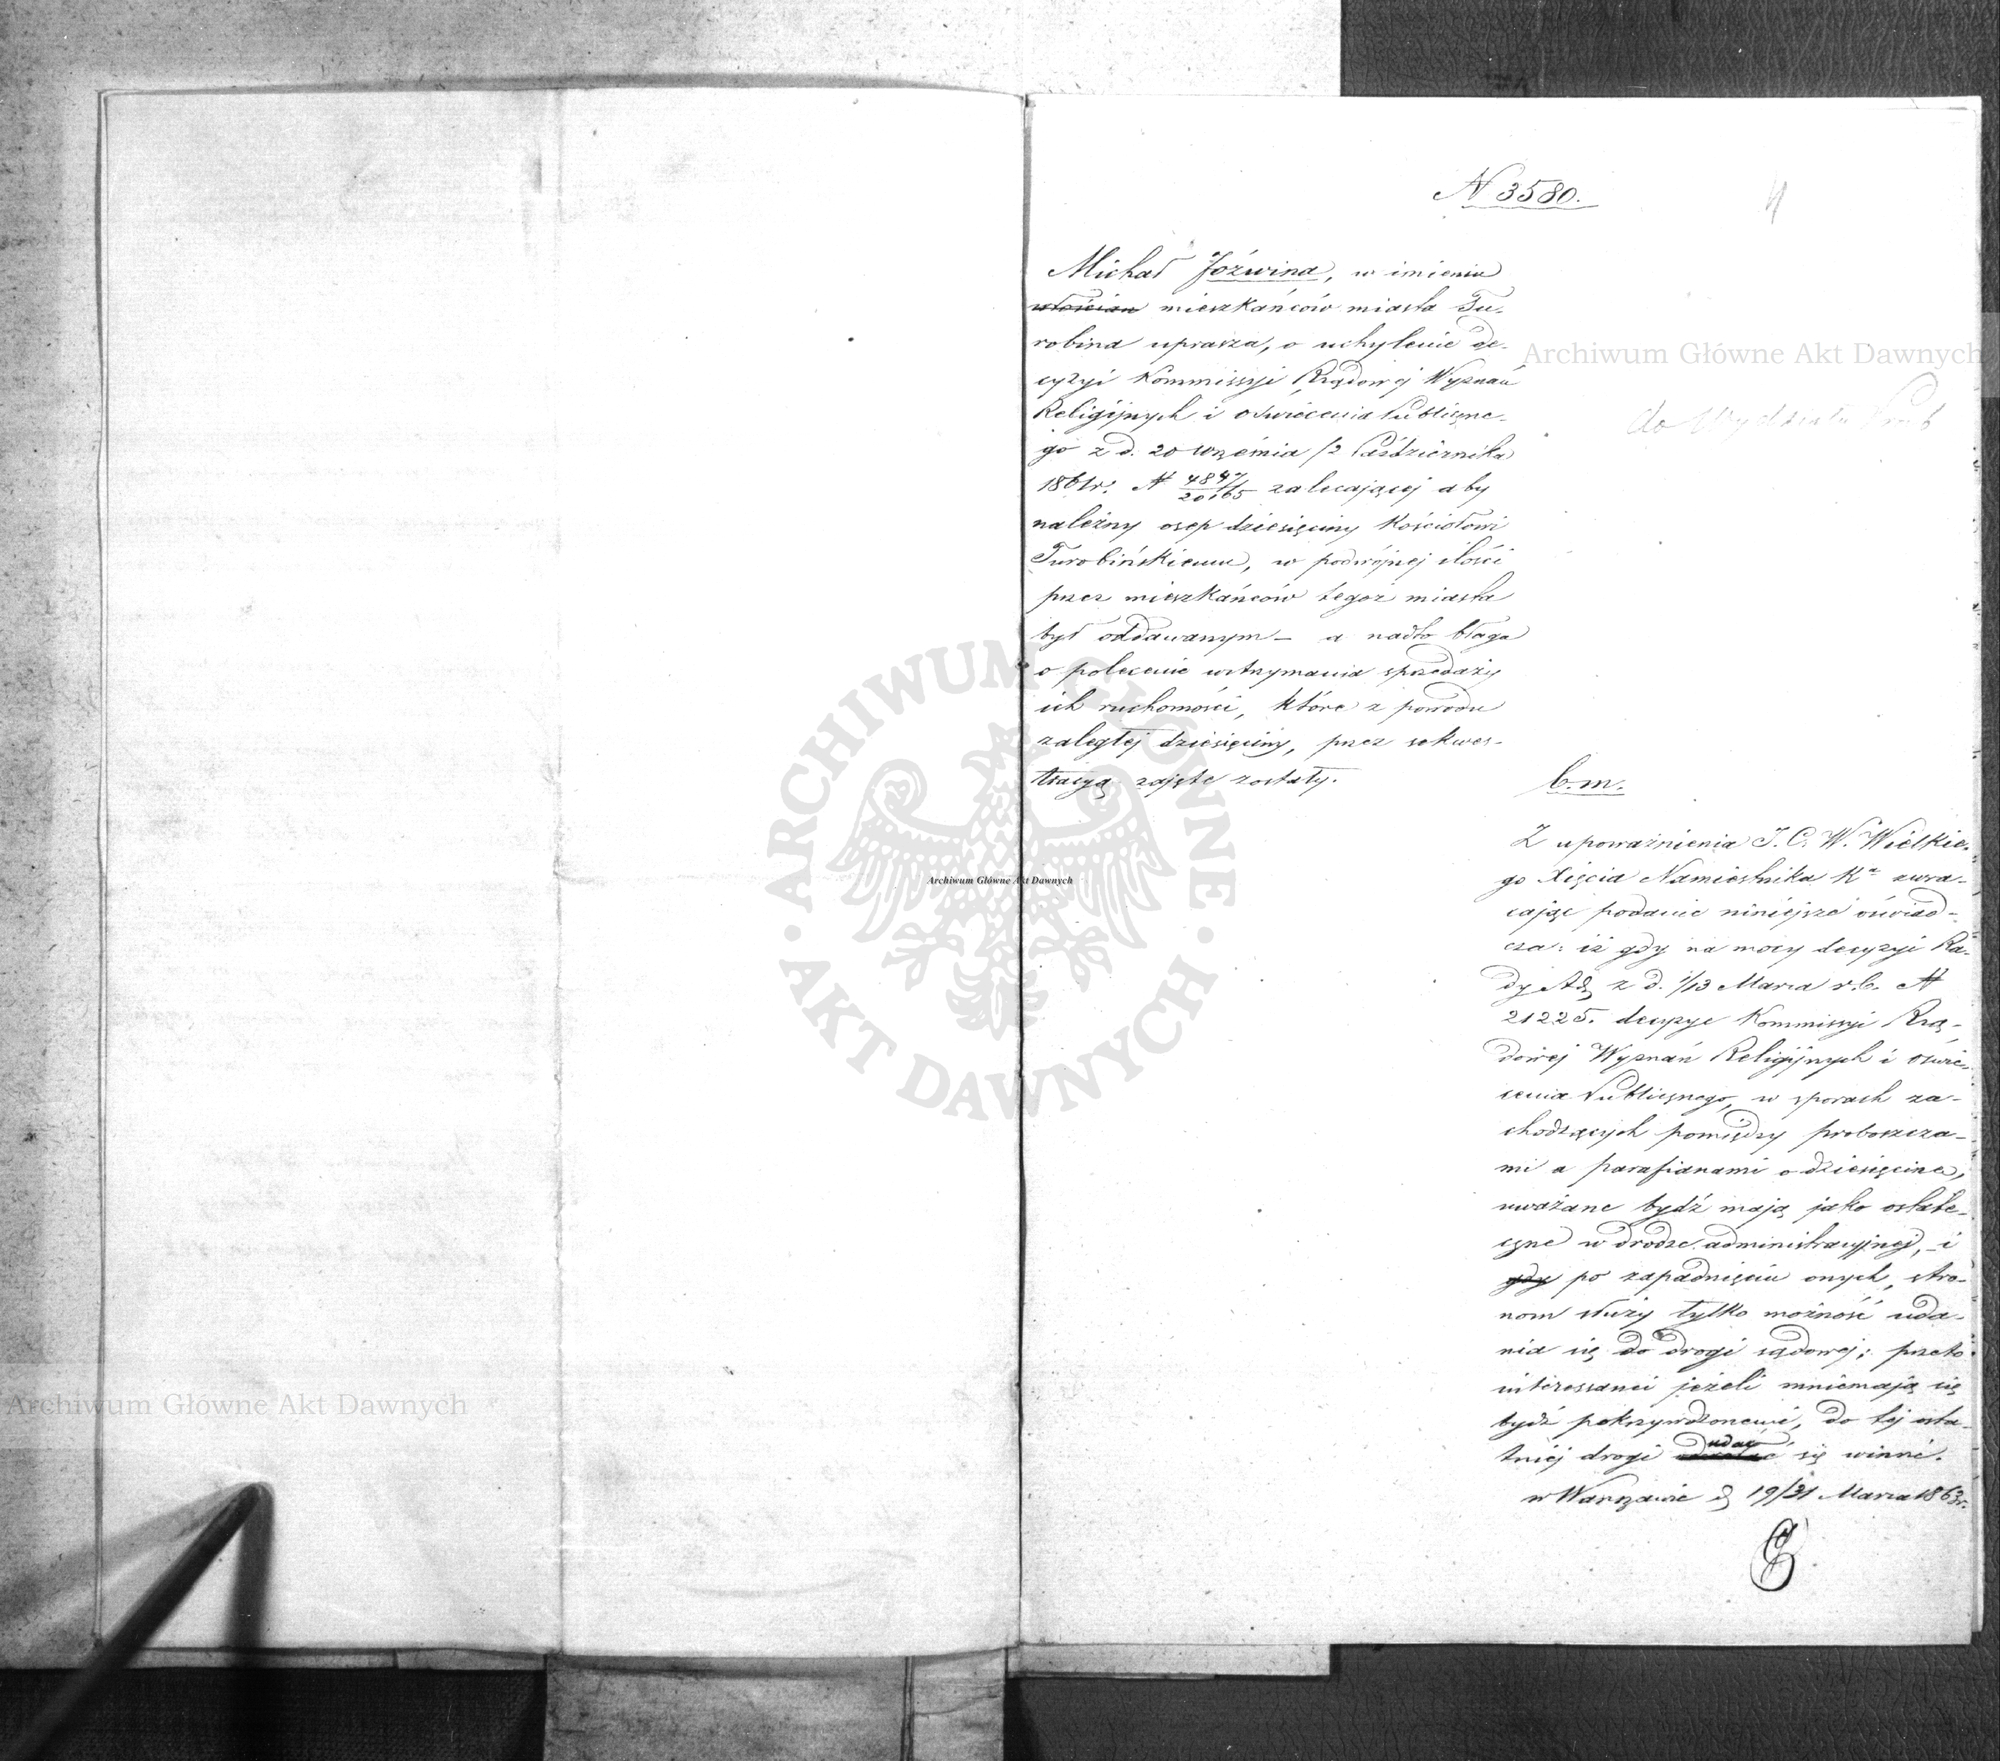 N 3580.
4
Michał Józwina, w imieniu
włościan mieszkańców miasta Tu-
robina uprasza, o uchylenie de-
cyzyi Kommissyi Rządowej Wyznań
Religijnych i Oświecenia Publiczne-
go z d. 20 Września/2 Października
1861r: N 4847/20165 zalecającej aby
należny osep dziesięciny Kościołowi
Turobińskiemu, w podwójnej ilości
przez mieszkańców tegoż miasta
był oddawanym – a nadto błaga
o polecenie wstrzymania sprzedaży
ich ruchomości, które z powodu
zaległej dziesięciny, przez sekwes-
tracyą zajęte zostały.
do Wydziału
b.m.
Z upoważnienia J. C. W. Wielkie-
go Xięcia Namiestnika Ka zwra-
cając podanie niniejsze oświad-
cza: iż gdy na mocy decyzyi Ra-
dy Ad z d. 1/13 Marca r.b. N
21225. decyzye Kommissyi Rzą-
dowej Wyznań Religijnych i Oświe-
cenia Publicznego, w sporach za-
chodzących pomiędzy proboszcza-
mi a parafianami o dziesięcinę,
uważane bydź mają jako ostate-
czne w drodze administracyjnej, – i
gdy po zapadnięciu onych, stro-
nom służy tylko możność uda-
nia się do drogi sądowej; przeto
interessanci jeżeli mniemają się
bydź pokrzywdzonemi, do tej osta-
tniéj drogi udać się winni.
w Warszawie d 19/31 Marca 1863r.
Archiwum Główne Akt Dawnych
Archiwum Główne Akt Dawnych
Archiwum Główne Akt Dawnych
ARCHIWUM GŁÓWNE AKT DAWNYCH